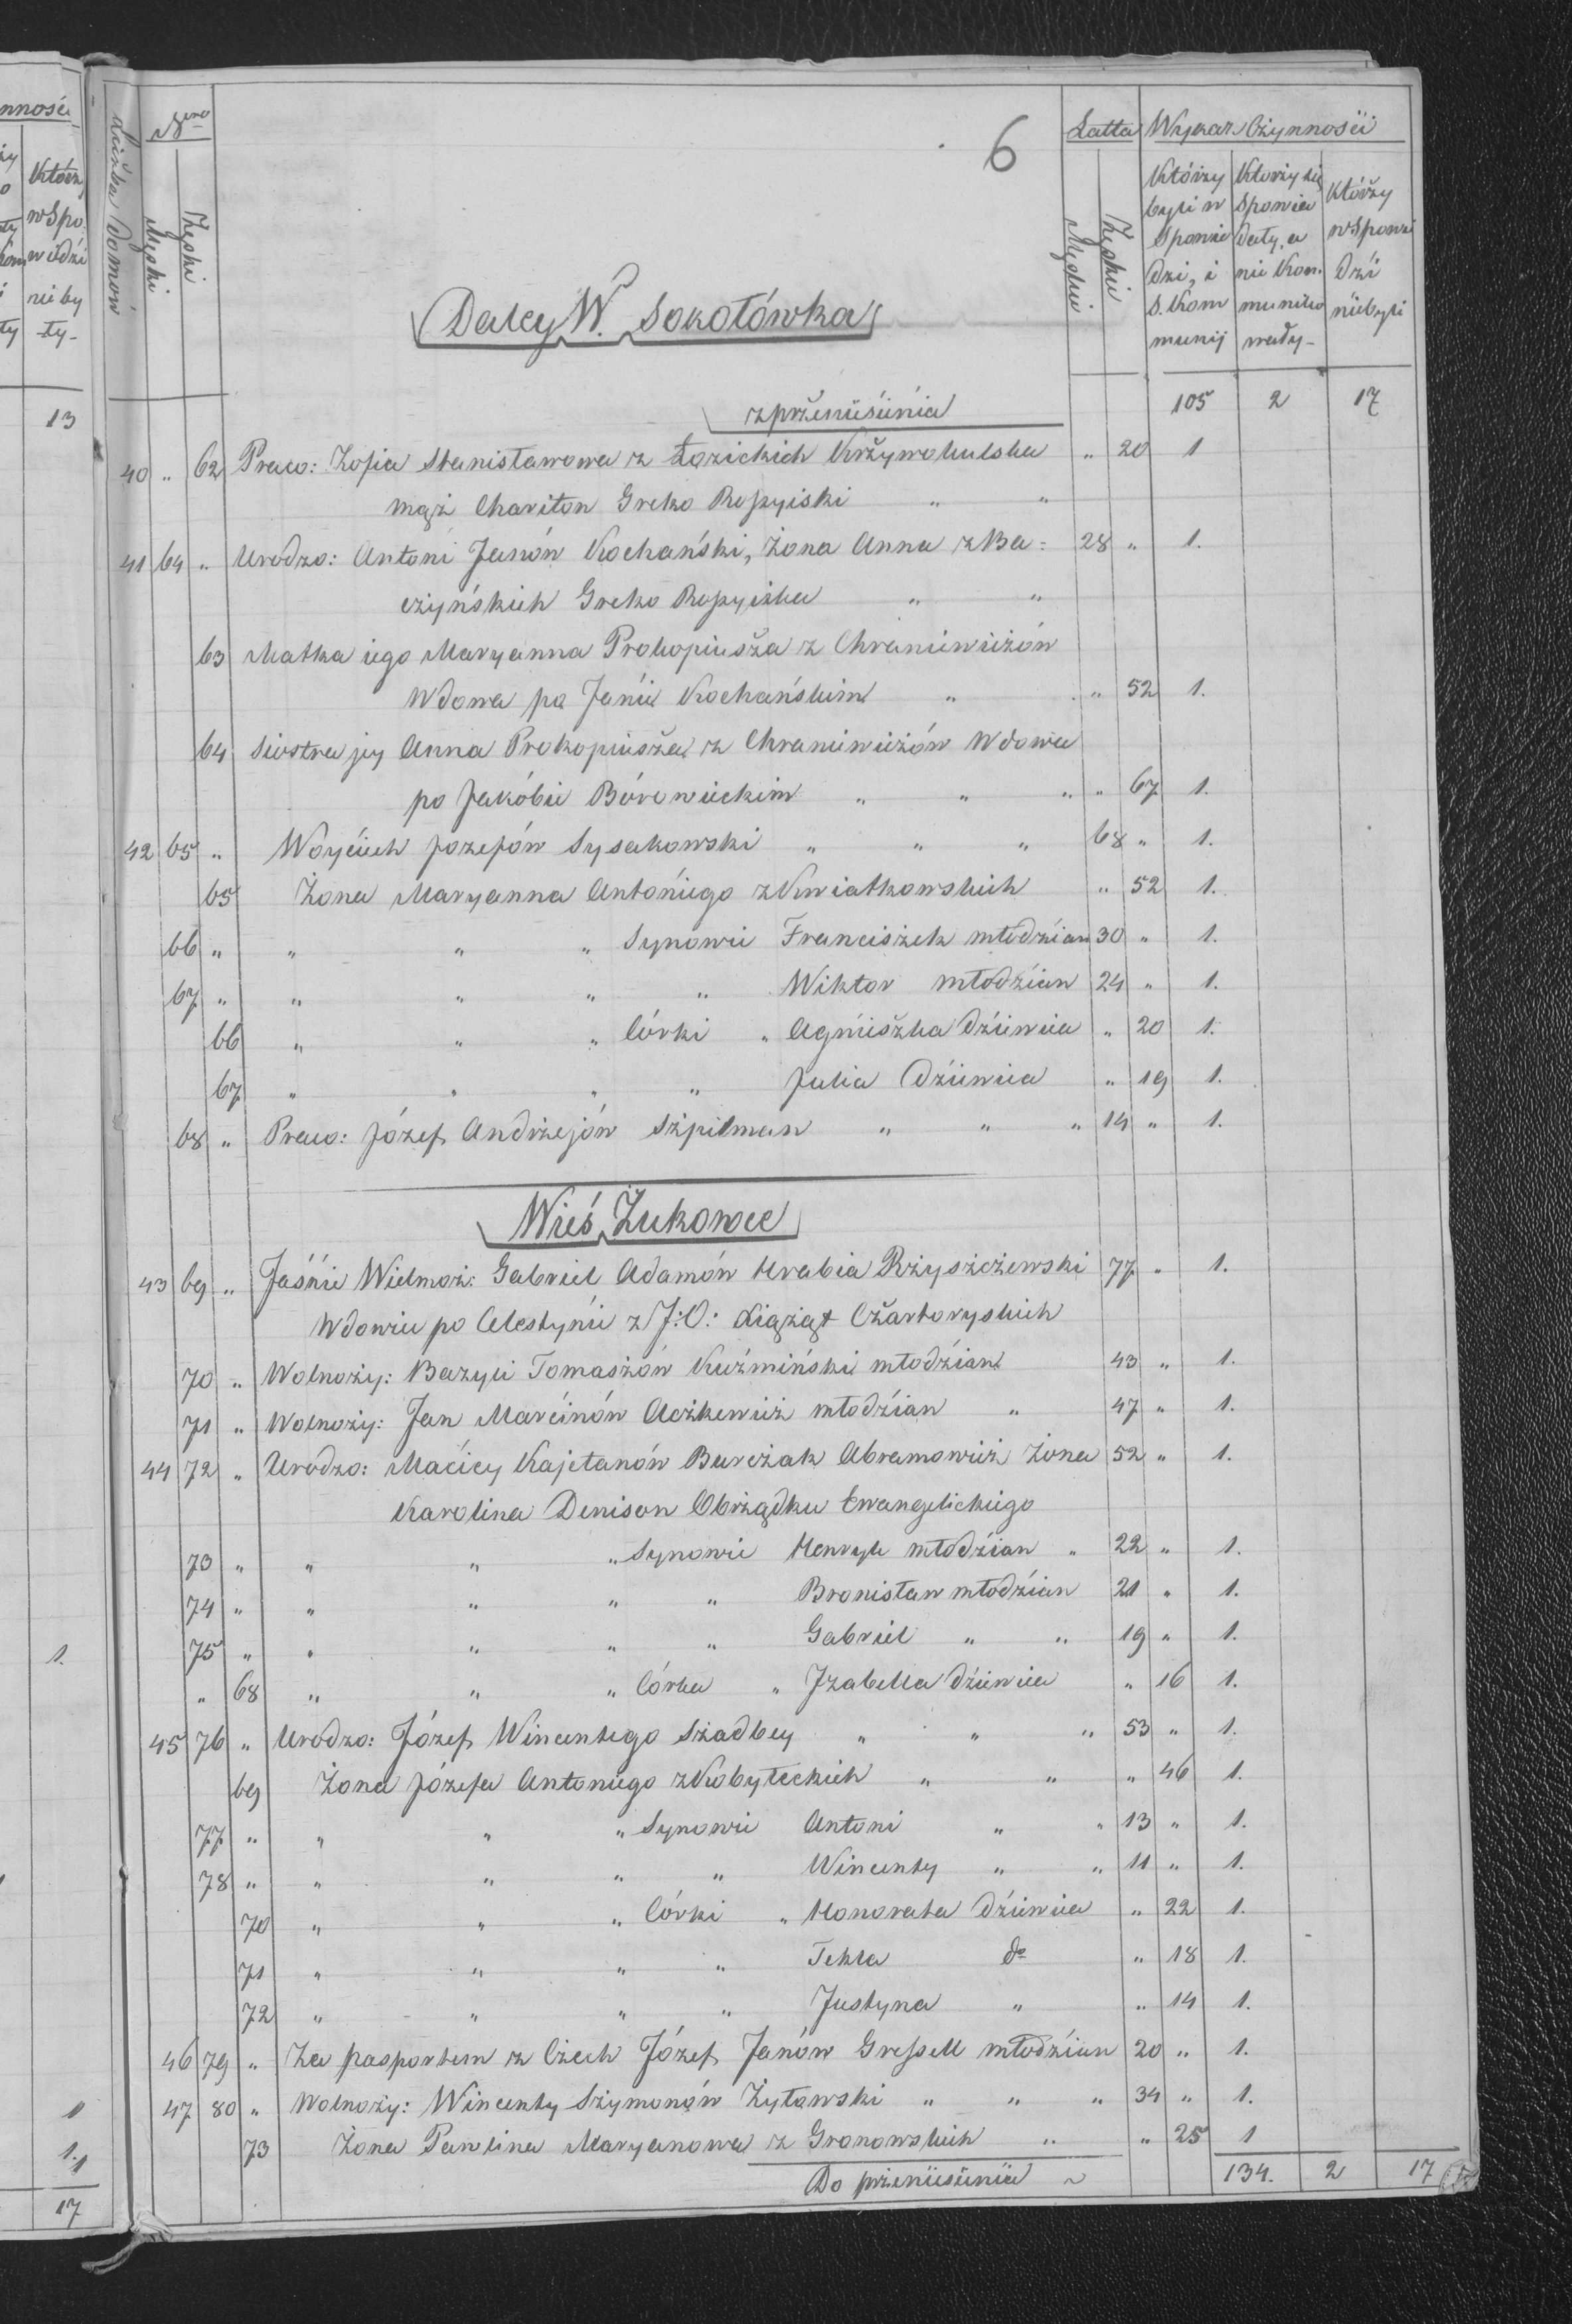 nnośći
Któży
wSpo
wiedźi
nieby
ły-
13
1.
1
1.
1
17
Liczba Domów
Nero
Męski
Żęski
6
Latta
Męskie
Żęskie
Wykaz Czynnośći
Któży byli w Spowiedzi, i S. Kommunij
Ktoży się Spowiadały, a nie Kommunikowały-
Któży w Spowiedźi niebyli
Daley W. Sokołówka
z przeniesienia 105 2 17
40 " 62 Praco: Zofia Stanisławowa z Łozickich Krżywohulska " 20 1
mąż Chariton Greko Rossyiski " "
41 64 " Urodzo: Antoni Janów Kochański, Żona Anna z Ba= 28 " 1.
czyńskich Greko Rossyiska " "
63 Matka iego Maryanna Prokopiusza z Chraniewiczów
Wdowa po Janie Kochańskim " " 52 1.
64 Siostra jey Anna Prokopiusza z Chraniewiczów Wdowa
po Jakóbie Bórowieckim " " " " 67 1.
42 65 " Woyciech Jozefów Sysakowski " " " 68 " 1.
65 Żona Maryanna Antoniego z Kwiatkowskich " 52 1.
66 " " " " Synowie Franciszek młodzian 30 " 1.
67 " " " " " Wiktor młodzian 24 " 1.
66 " " " Córki " Agnieszka Dziewica " 20 1.
67 " " " " Julia Dziewica " 19 1.
68 " Praco: Józef Andrzejów Szpilman " " " 14 " 1.
Wieś Żukowce
43 69 " Jaśnie Wielmoż: Gabriel Adamów Hrabia Rżyszczewski 77 " 1.
Wdowiec po Celestynie z J:O: Xiążąt Czartoryskich
70 " Wolnoży: Bazyli Tomaszów Kuźmiński młodzian 43 " 1.
71 " Wolnoży: Jan Marcinów Aczkewicz młodzian " 47 " 1.
44 72 " Urodzo: Maciey Kajetanów Burczak Abramowicz Żona 52 " 1.
Karolina Denison Obrządku Ewangelickiego
73 " " " " Synowie Henryk młodzian " 22 " 1.
74 " " " " " Bronisław młodzian 21 " 1.
75 " " " " " Gabriel " " 19 " 1.
" 68 " " " Córka " Jzabella Dziewica " 16 1.
45 76 " Urodzo: Józef Wincentego Szadbey " " " 53 " 1.
69 Żona Józefa Antoniego z Kobyleckich " " " 46 1.
77 " " " " Synowie Antoni " " 13 " 1.
78 " " " " " Wincenty " " 11 " 1.
70 " " " Córki " Honorata Dziewica " 22 1.
71 " " " " Tekla do " 18 1.
72 " " " " Justyna " " 14 1.
46 79 " Za pasportem z Czech Józef Janów Gressell młodzian 20 " 1.
47 80 " Wolnoży: Wincenty Szymonów Żytowski " " " 34 " 1.
73 Żona Pawlina Maryanowa z Gronowskich " " 25 1
Do przeniesienia ~ 134. 2 17